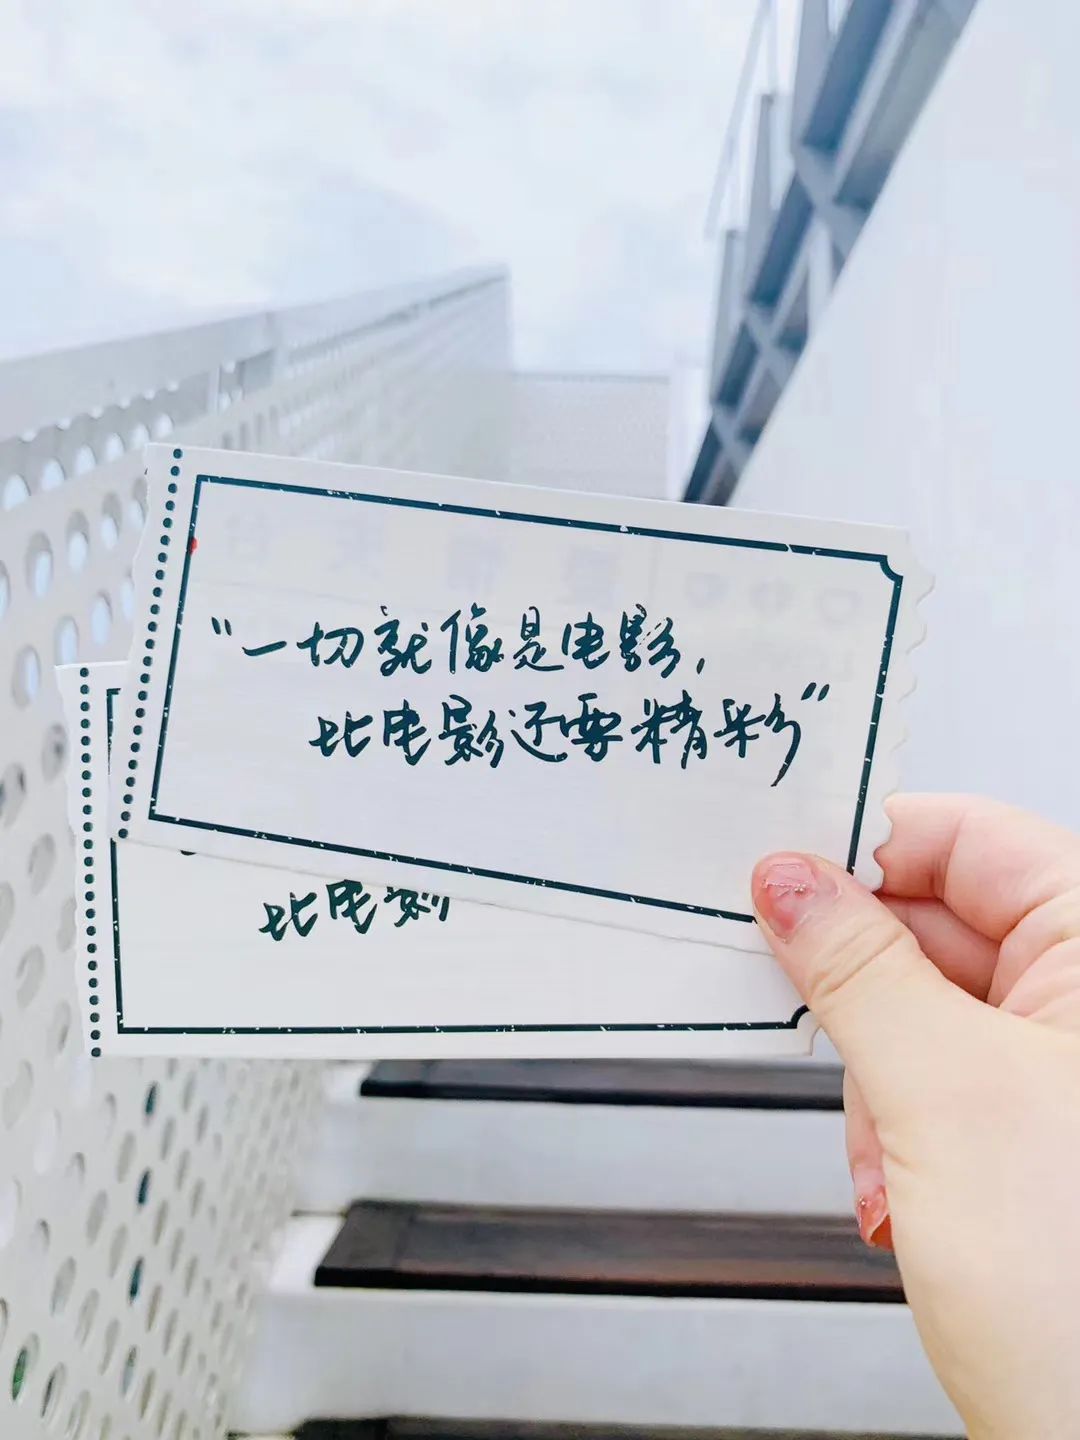 “一切就像是电影，
比电影还要精彩”
比电影